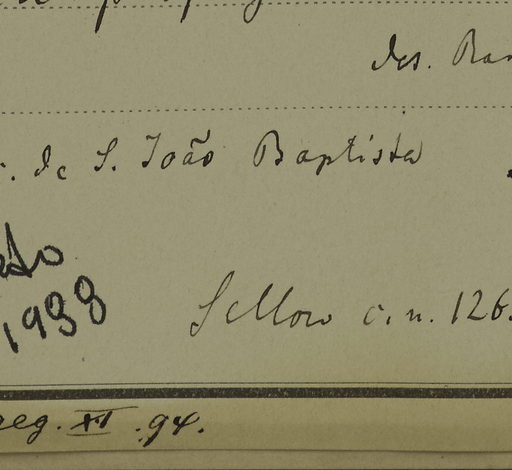 des. Ram
. de S. João Baptista
1938
Sellow c. n. 126.
reg. XI .94.